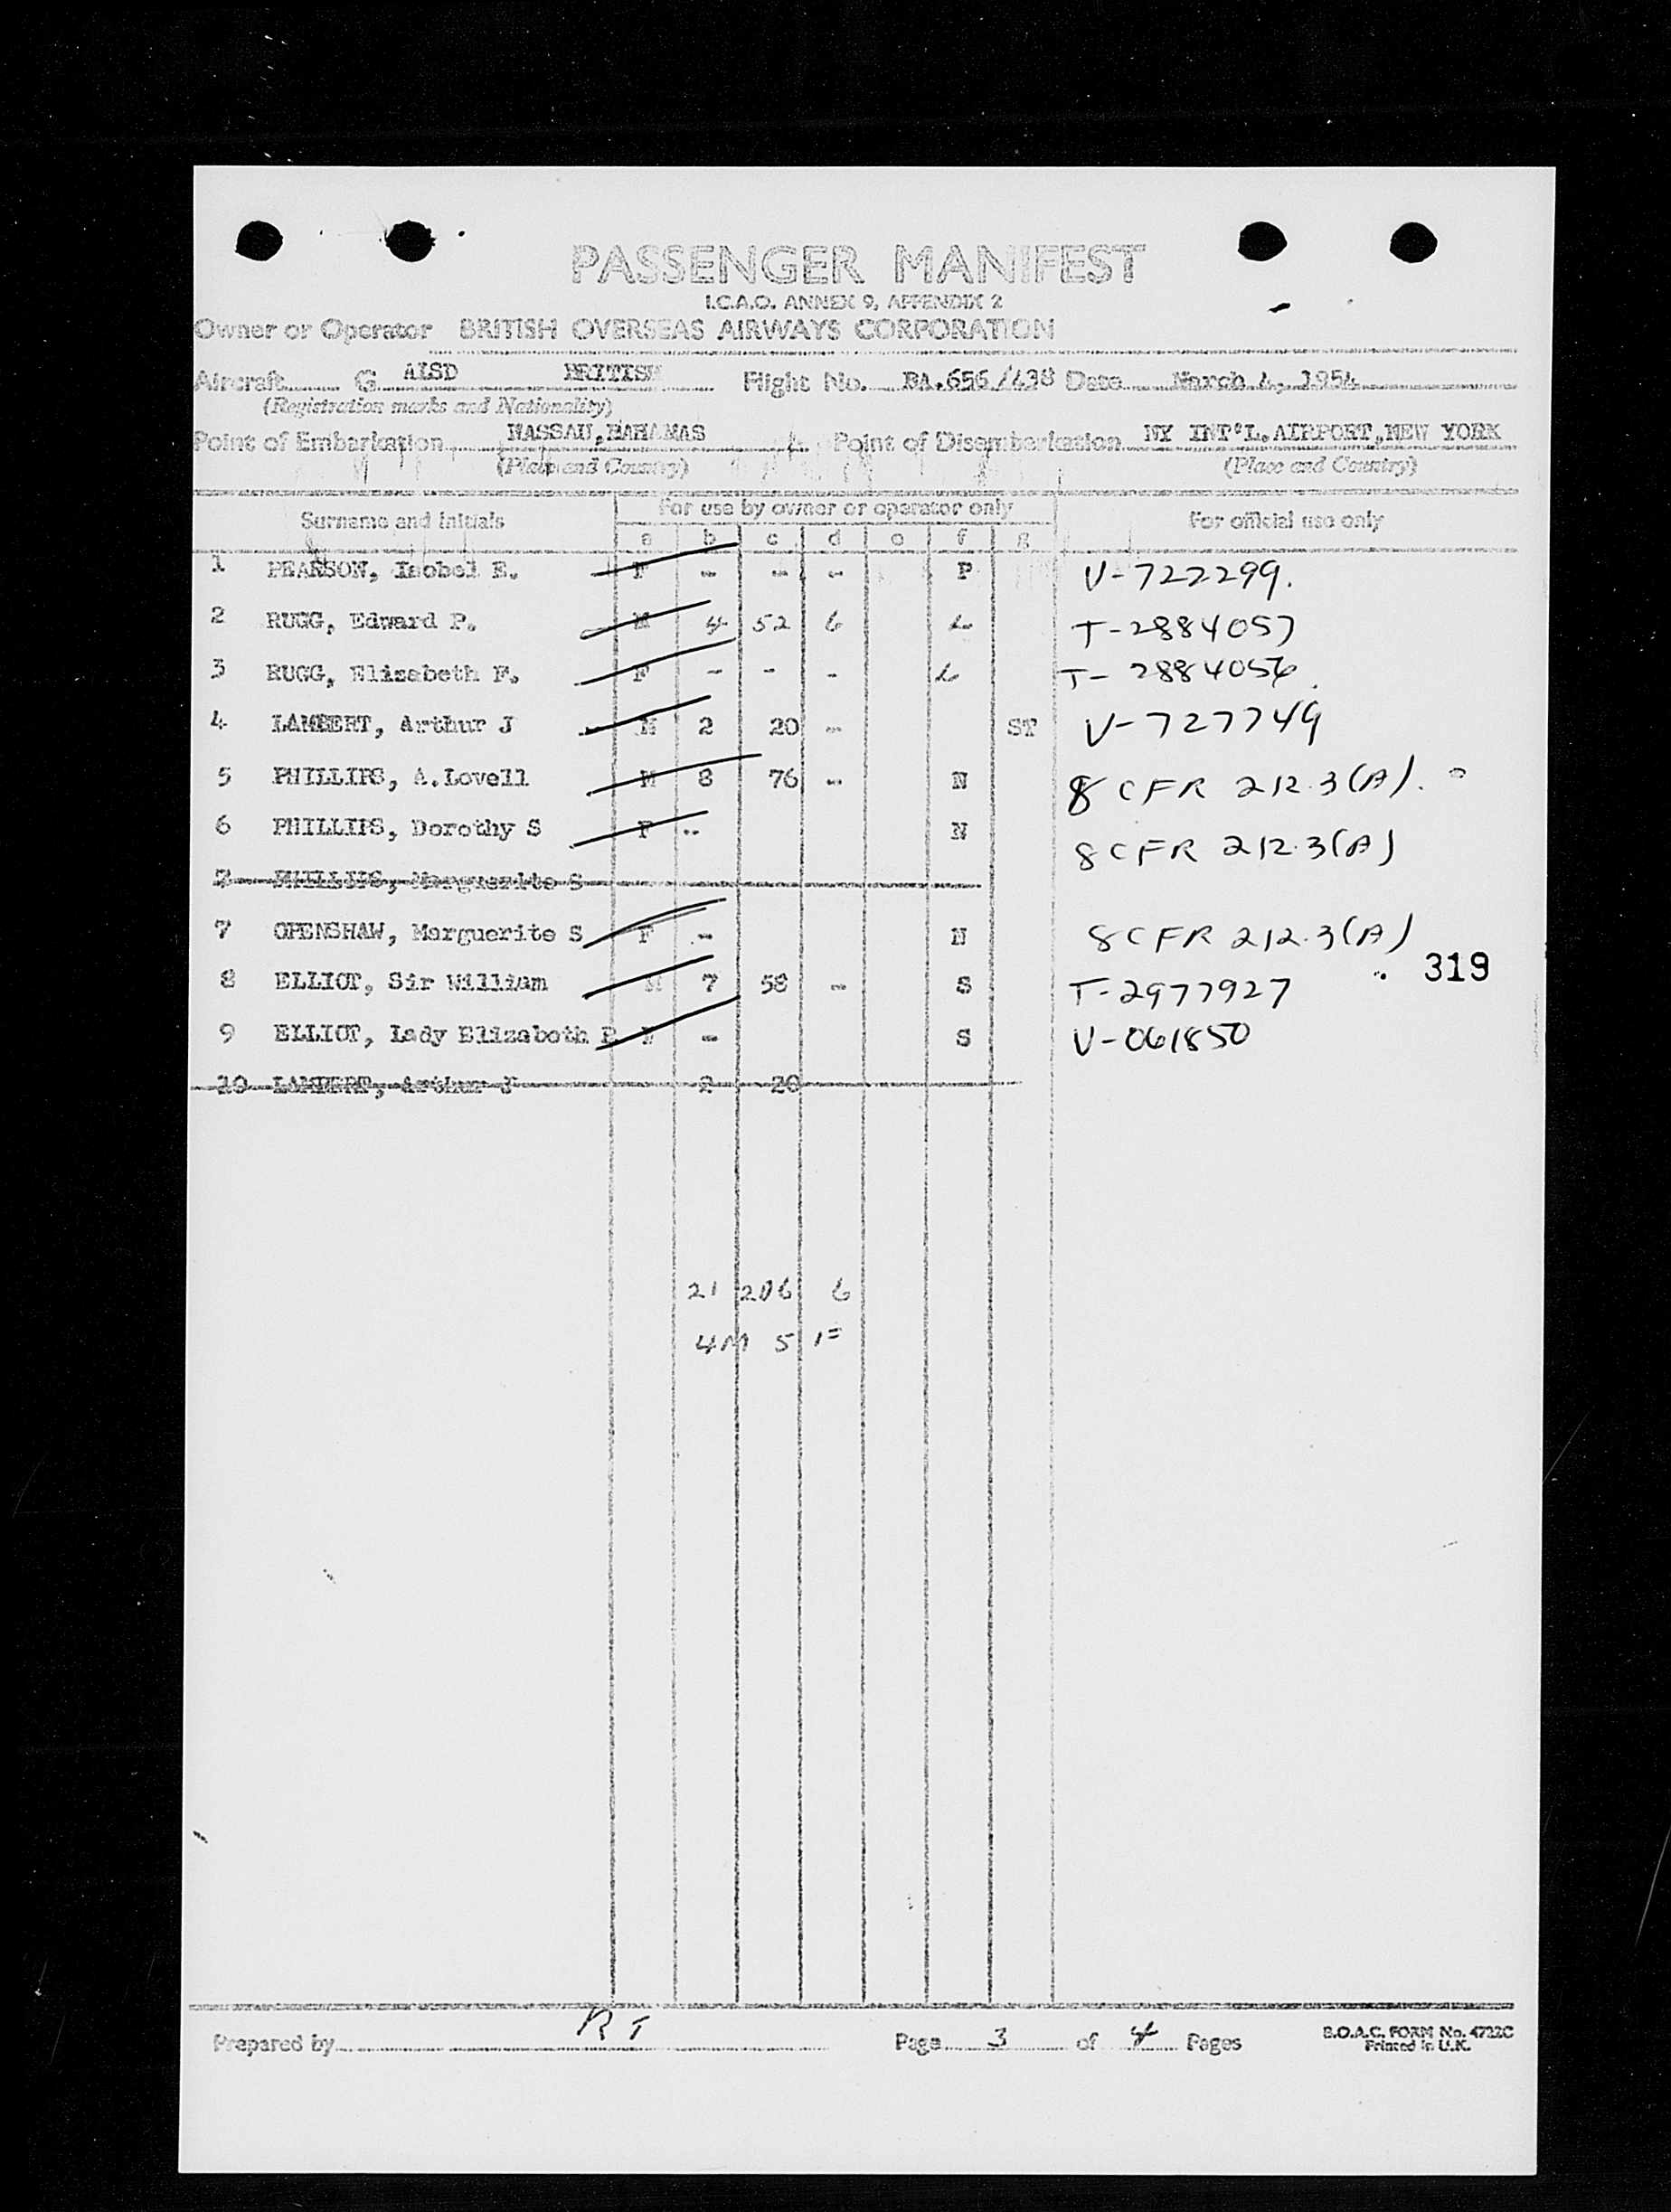 PASSENGER MANIFEST
I.C.A.O. ANNEX 9, APPENDIX 2
Owner or Operator BRITISH OVERSEAS AIRWAYS CORPORATION
Aircraft G ALSD BRITISH Flight No. BA.656/438 Date March 4, 1954
(Registration marks and Nationality)
Point of Embarkation NASSAU, BAHAMAS Point of Disembarkation NY INT'L. AIRPORT, NEW YORK
(Place and Country) (Place and Country)
Surname and Initials For use by owner or operator only For official use only
a b c d e f g
1 PEARSON, Isobel E. F - - - P V-722299.
2 RUGG, Edward P. M 4 52 6 L T-2884057
3 RUGG, Elizabeth F. F - - - L T-2884056.
4 LAMBERT, Arthur J M 2 20 - ST V-727749
5 PHILLIPS, A.Lovell M 8 76 - N 8 CFR 212.3(A).
6 PHILLIPS, Dorothy S F -- N 8 CFR 212.3(A)
7 PHILLIPS, Marguerite S
7 OPENSHAW, Marguerite S F -- N 8 CFR 212.3(A)
319
8 ELLIOT, Sir William M 7 58 - S T-2977927
9 ELLIOT, Lady Elizabeth P F - S V-061850
10 LAMBERT, Arthur J 2 20
21 206 6
4M 5 F
Prepared by RT Page 3 of 4 Pages
B.O.A.C. FORM No. 4722C
Printed in U.K.